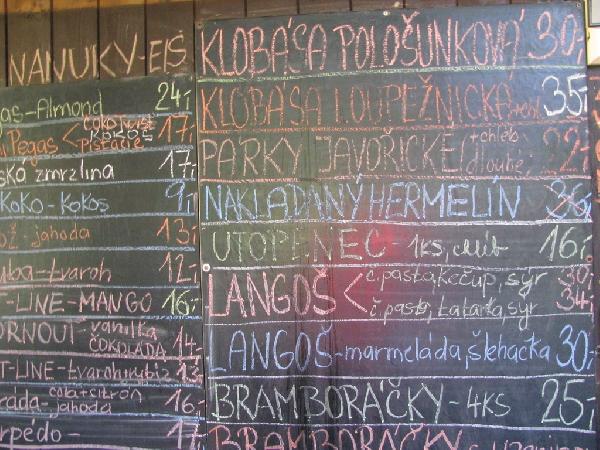 NANUKY-EIS
gas-Almond 24,-
Pegas < cokotwist kokos pistácie 17,-
ská zmrzlina 17,-
Koko-Kokos 9,-
jahoda 13,-
tvaroh 12,-
T-LINE-MANGO 16,-
vanilka ČOKOLÁDA 14,-
T-LINE-tvaroh+rybíz 13,-
cola+citron jahoda 16,-
rpédo- 17,-
KLOBÁSA POLOŠUNKOVÁ 30,-
KLOBÁSA LOUPEŽNICKÁ 35,-
PÁRKY JAVOŘICKÉ +chléb dlouhé 22,-
NAKLÁDANÝ HERMELÍN 36,-
UTOPENEC-1ks, chléb 16,-
LANGOŠ < č.pasta, kečup, sýr 30,-
č.pasta, tatarka, sýr 34,-
LANGOŠ-marmeláda, šlehačka 30,-
BRAMBORÁČKY-4KS 25,-
BRAMBORÁČKY